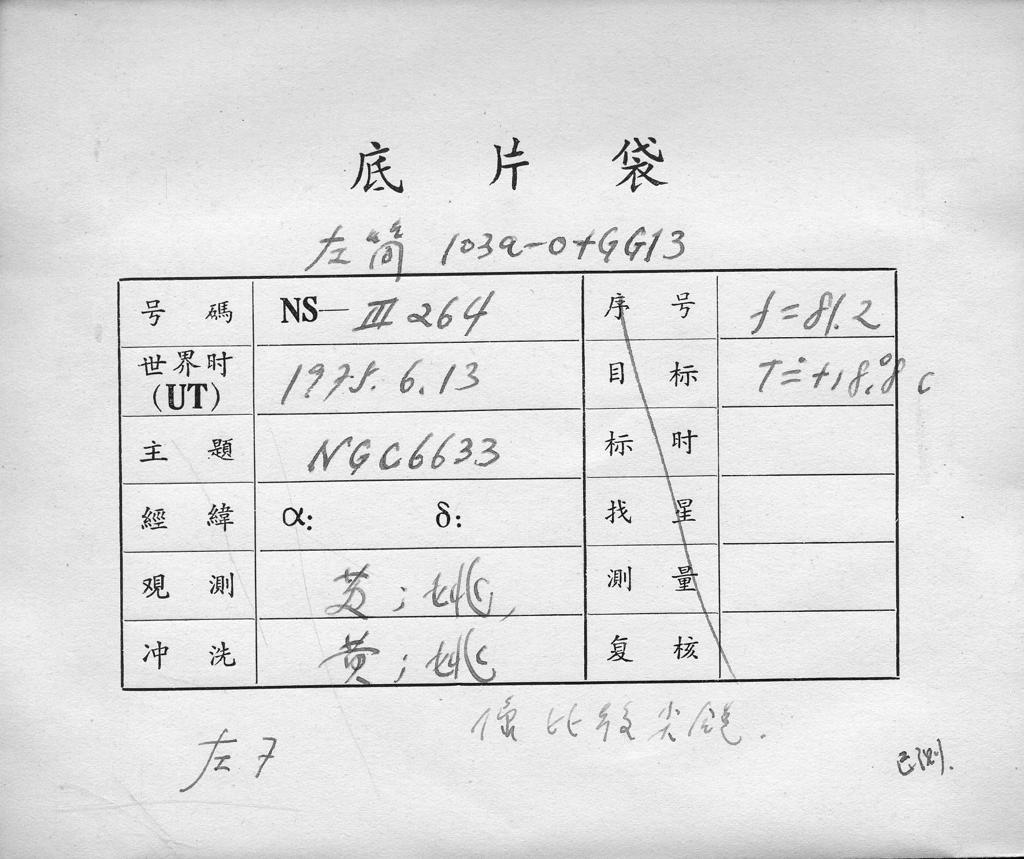 底 片 袋
左筒 103a-O+GG13
号 碼 NS—III 264 序 号 f=81.2
世界时(UT) 1975.6.13 目 标 T=+18.°8 C
主 題 NGC6633 标 时
經 緯 α: δ: 找 星
观 測 黄;姚 測 量
冲 洗 黄;姚 复 核
像比较尖锐.
左 7
已测.